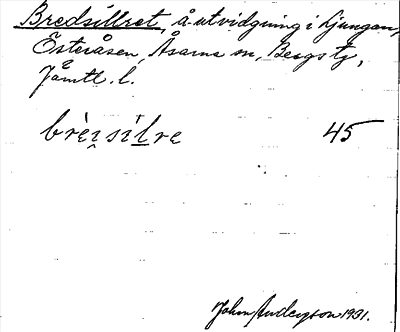 Bredsillret, å-utvidgning i Ljungan,
Österåsen, Åsarne sn, Bergs tg,
Jämtl. l.
brèi̯ siłre 45
John Andersson 1931.